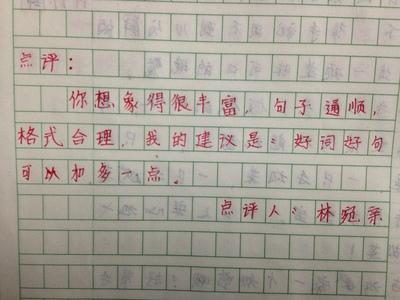 点评：
你想象得很丰富，句子通顺，
格式合理，我的建议是：好词好句
可以加多一点．
点评人：林宛亲